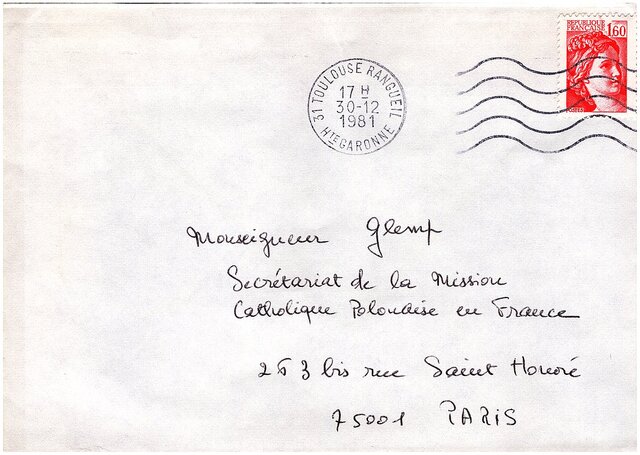 REPUBLIQUE
FRANÇAISE 1,60
31 TOULOUSE RANGUEIL
17 H
30-12
1981
HTE GARONNE
Monseigneur Glemp
Secrétariat de la Mission
Catholique Polonaise en France
263 bis rue Saint Honoré
75001 PARIS